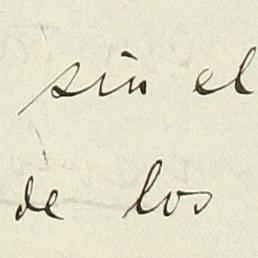 sin el
de los